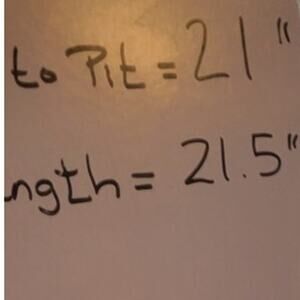 to Pit = 21"
ngth = 21.5"